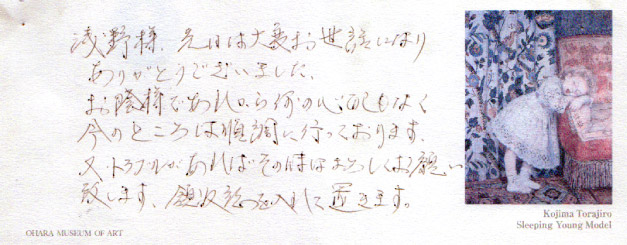 浅野様、先日は大変お世話になり
ありがとうございました。
お陰様であれから何の心配もなく
今のところは順調に行っております。
又、トラブルがあればその時はよろしくお願い
致します、領収証を入れて置きます。
Kojima Torajiro
Sleeping Young Model
OHARA MUSEUM OF ART